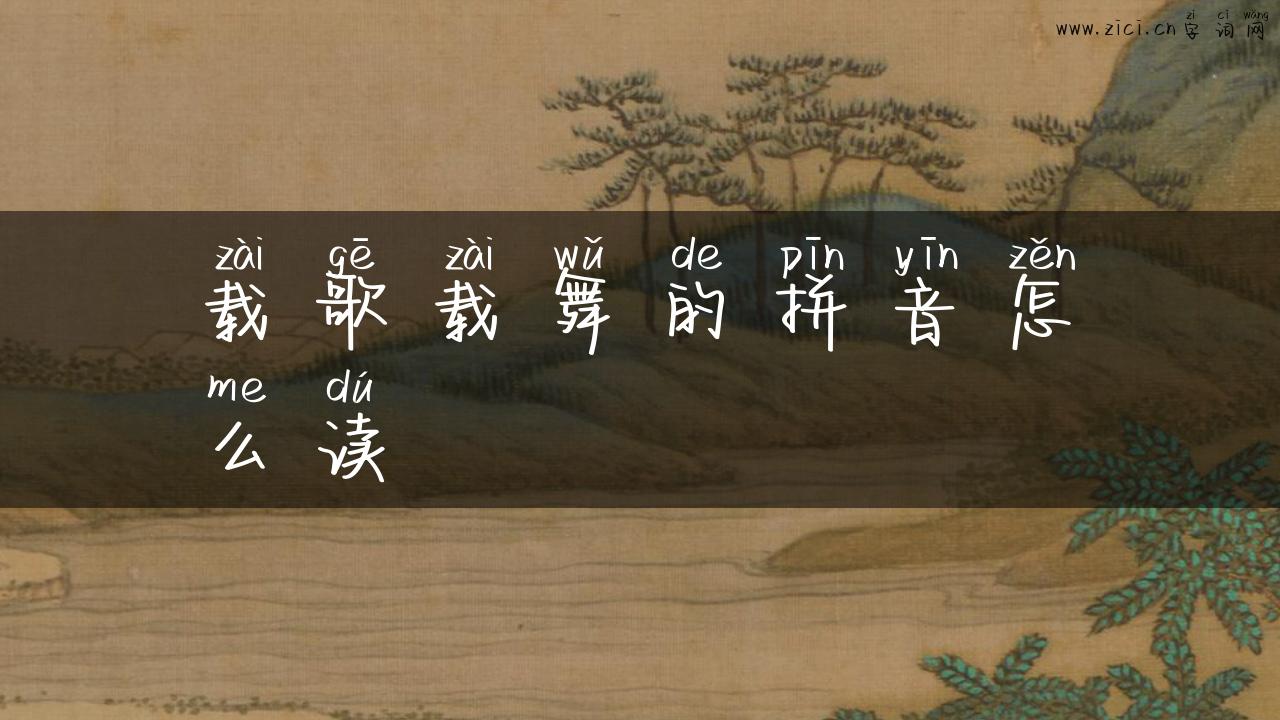 zì cí wǎng
www.zici.cn 字 词 网
zài gē zài wǔ de pīn yīn zěn
载 歌 载 舞 的 拼 音 怎
me dú
么 读